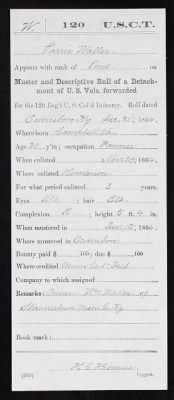 W. 120 U.S.C.T.
Parrin Waller
Appears with rank of Pvt
Muster and Descriptive Roll of a Detach-
ment of U. S. Vols. forwarded
for the 120 Reg't U.S. Col'd Infantry. Roll dated
Owensboro Ky Dec 31, 1864.
Where born Campbell Va
Age 30 y'rs; occupation Farmer
When enlisted Nov 29, 1864.
Where enlisted Henderson
For what period enlisted 3 years.
Eyes Blk; hair Blk
Complexion B; height 5 ft. 4 in.
When mustered in Dec 12, 1864.
Where mustered in Owensboro
Bounty paid $ 100; due $ 100
Where credited Union Co 1" Dist
Company to which assigned
Remarks: Owner Wm Waller of
Ky
Book mark:
H. C. Thomas
Copyist.